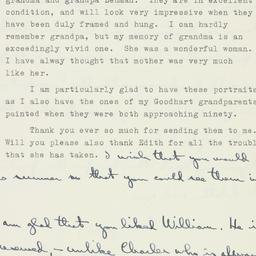 grandma and grandpa Lehman. They are in excellent
condition, and will look very impressive when they
have been duly framed and hung. I can hardly
remember grandpa, but my memory of grandma is an
exceedingly vivid one. She was a wonderful woman.
I have alway thought that mother was very much
like her.
I am particularly glad to have these portraits
as I also have the ones of my Goodhart grandparents
painted when they were both approaching ninety.
Thank you ever so much for sending them to me.
Will you please also thank Edith for all the troubl
that she has taken. I wish that you would
summer so that you could see them in
am glad that you liked William. He is
reserved, - unlike Charles who is always